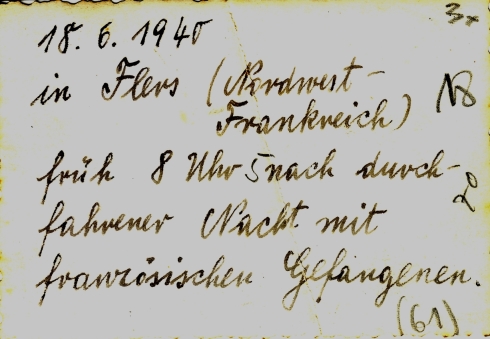 3x
18.6.1940
in Flers (Nordwest-
Frankreich)
N8
früh 8 Uhr 5 nach durch-
fahrener Nacht mit
20
französischen Gefangenen.
(61)